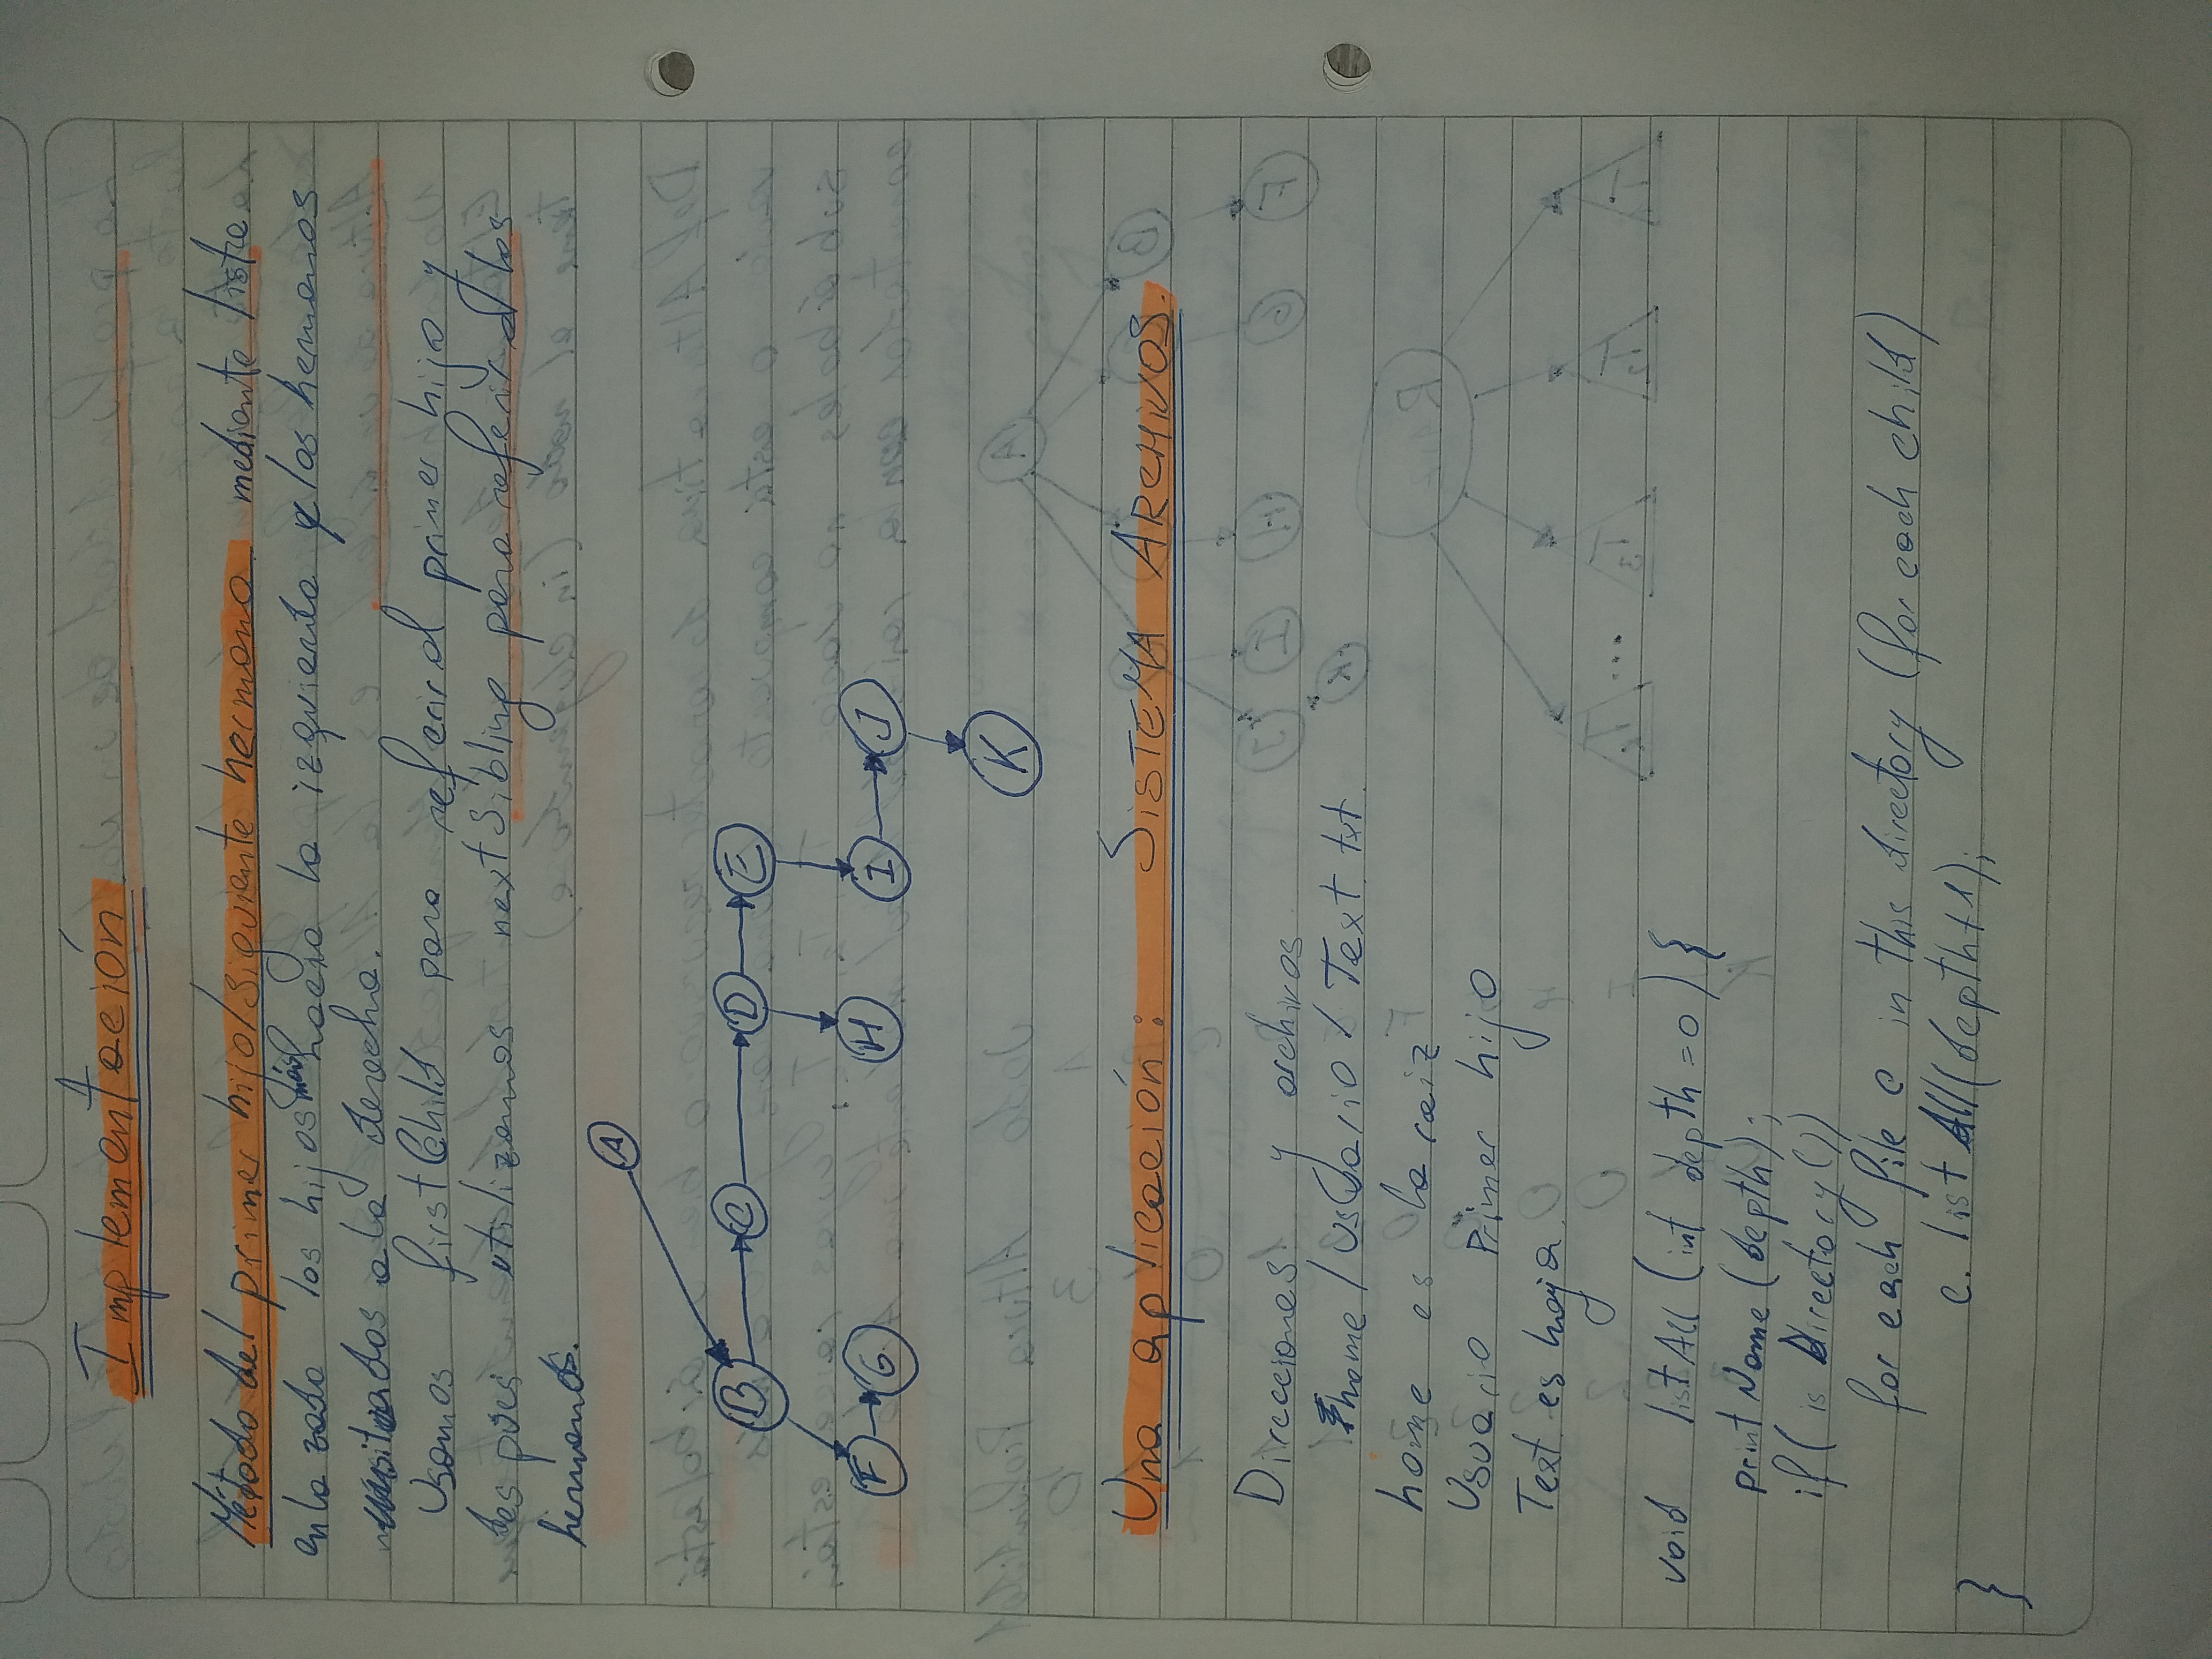 Implementación
Método del primer hijo/siguiente hermano mediante lista
enlazada los hijos más hacia la izquierda y los hermanos
situados a la derecha.
Usamos firstChild para referir al primer hijo y
despúes utilizamos nextSibling para referir a los
hermanos.
A
B C D E
F G H I J
K
Una aplicación: SISTEMA ARCHIVOS.
Direcciones y archivos
home / Usuario / Text.txt.
home es la raiz
Usuario Primer hijo
Text es hoja
void listAll (int depth=0) {
printName (depth);
if ( is Directory())
for each file c in this directory (for each child)
c. listAll(depth+1);
}